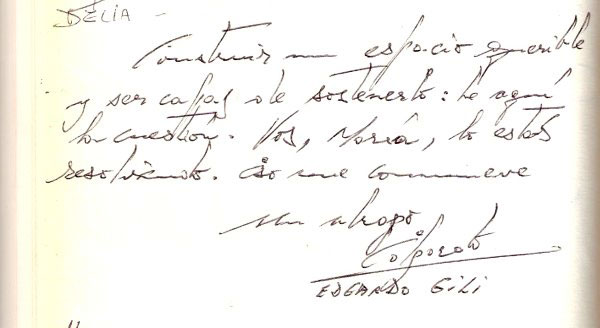 DELIA -
Construir un espacio querible
y ser capaz de sostenerlo: he aquí
la cuestión. Vos, María, lo estás
resolviendo. Eso me conmueve
un abrazo
EDGARDO GILI